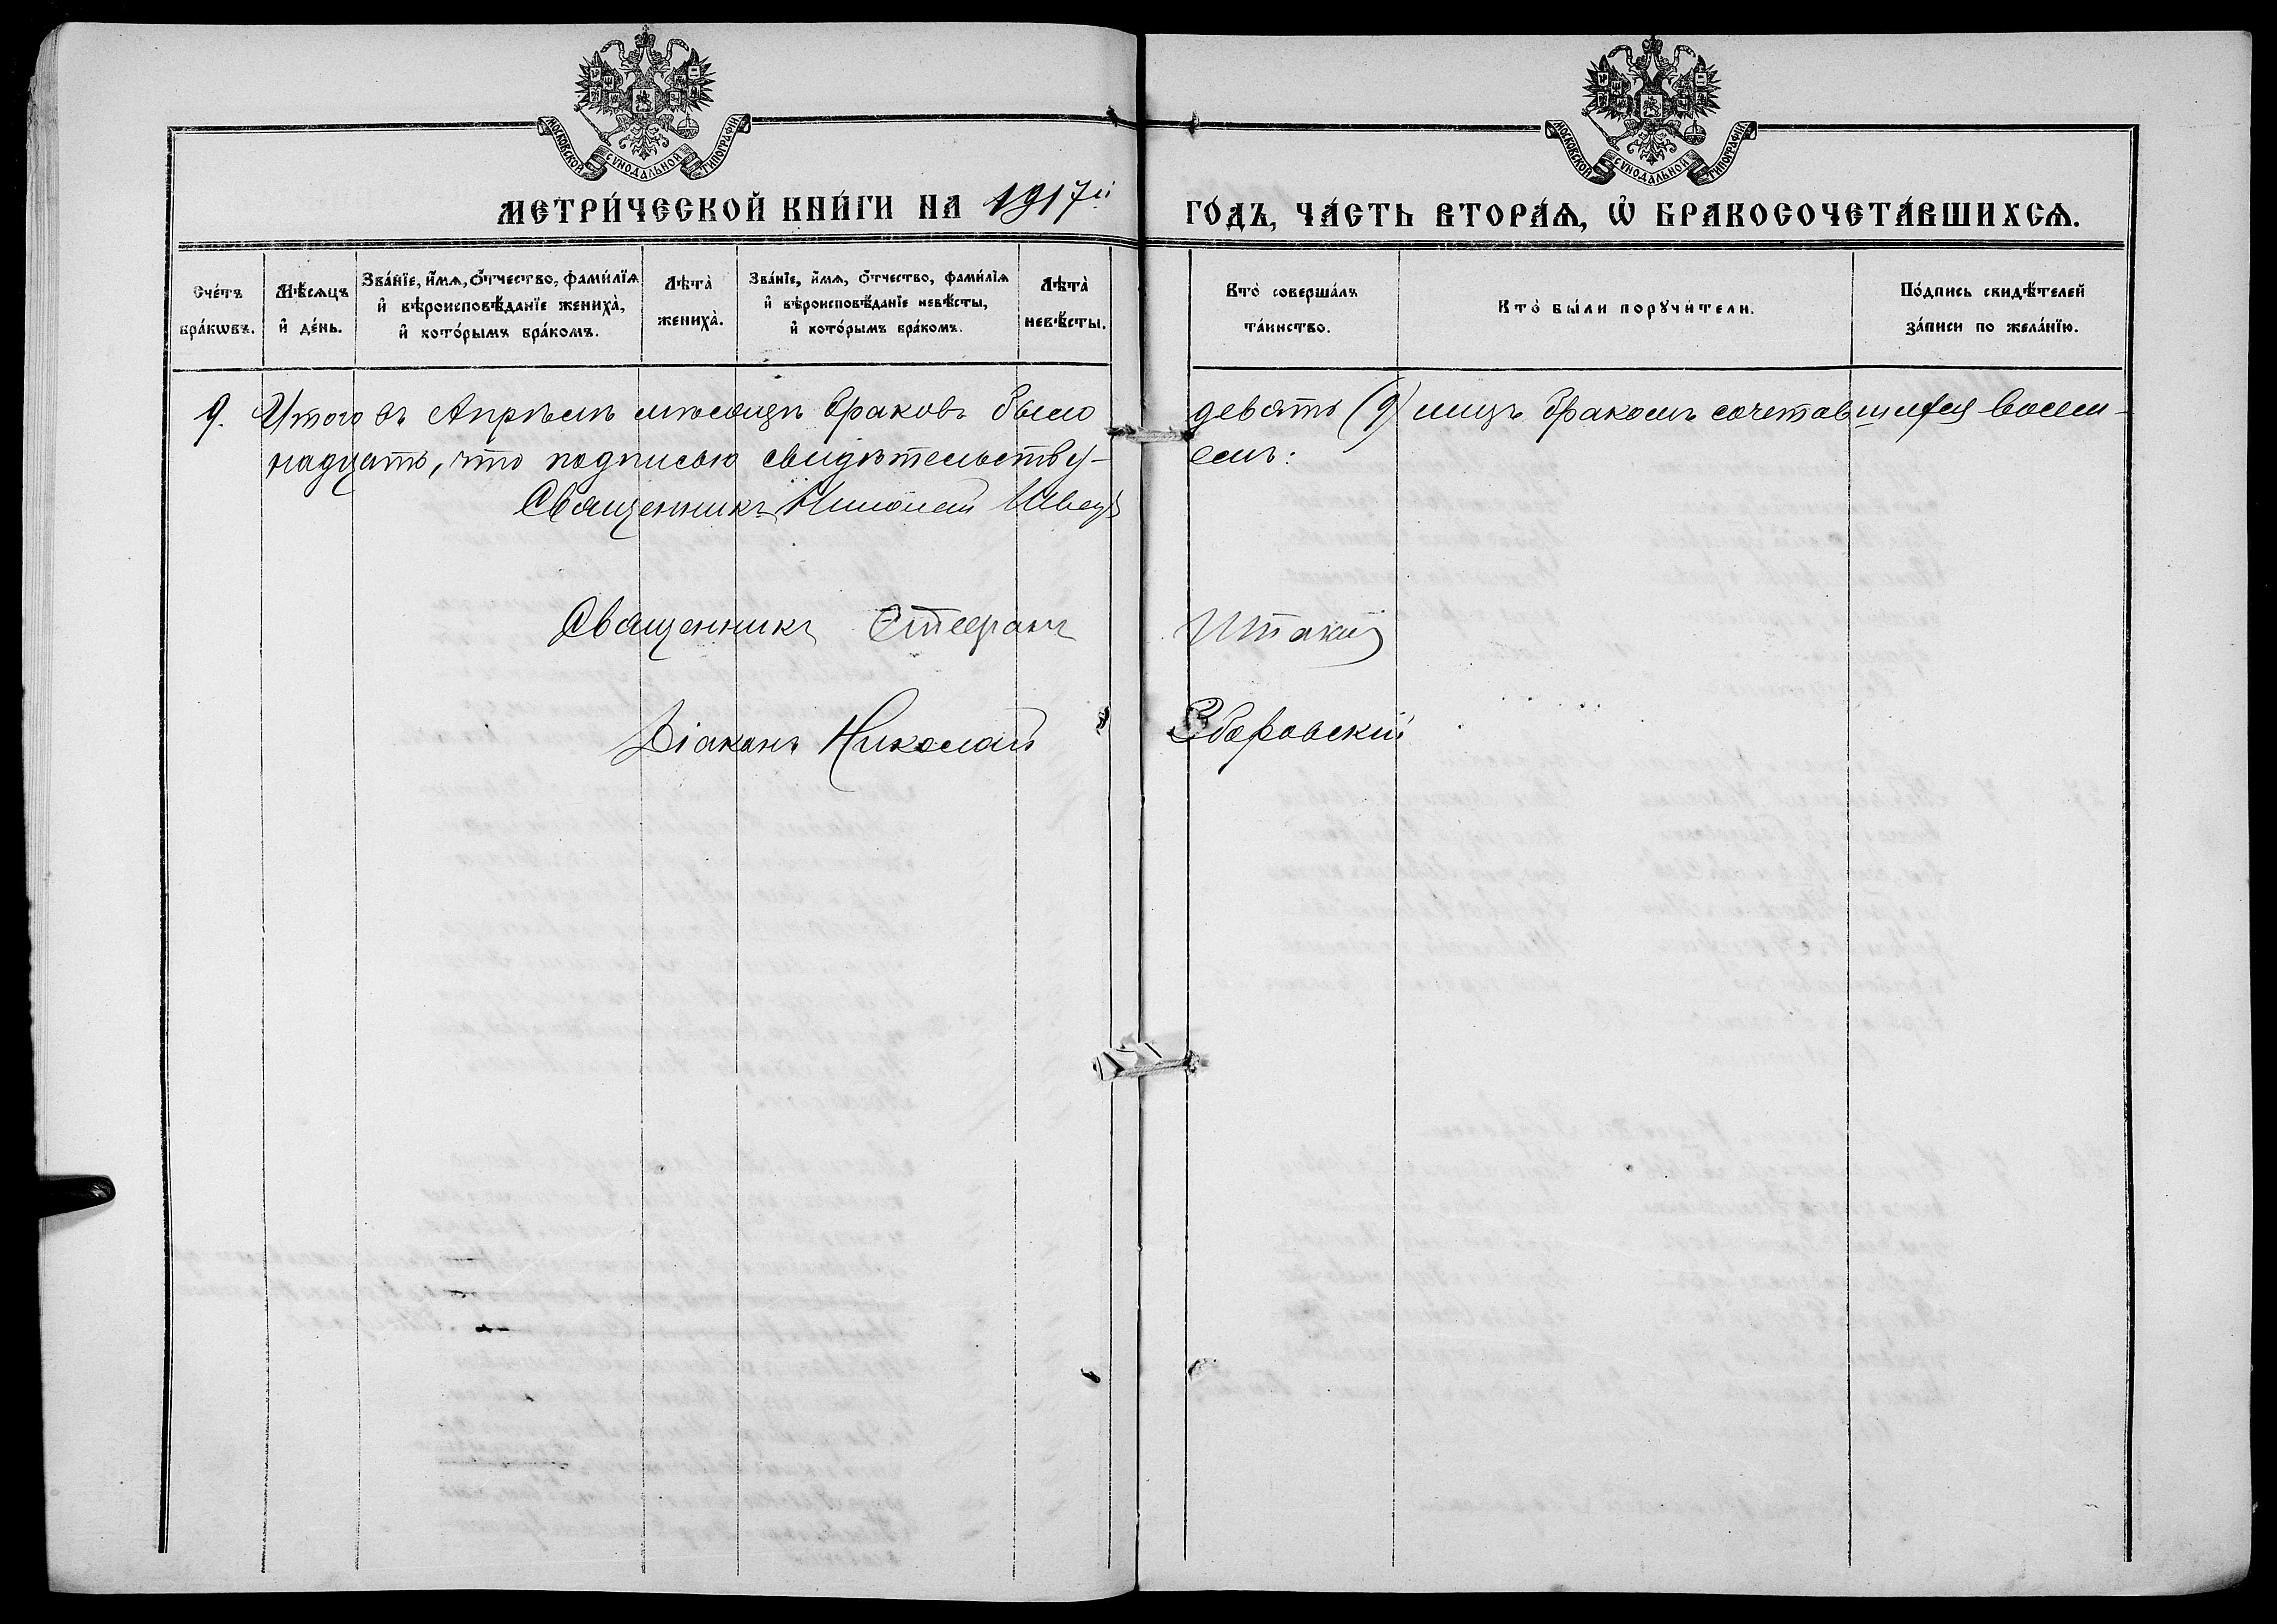 МОСКОВСКОЙ СѴНОДАЛЬНОЙ ТИПОГРАФІИ
МОСКОВСКОЙ СѴНОДАЛЬНОЙ ТИПОГРАФІИ
МЕТРИ́ЧЕСКОЙ КНИ́ГИ НА 1917й
ГО́ДЪ, ЧА́СТЬ ВТОРА́Ѧ, Ѡ҆ БРАКОСОЧЕТА́ВШИХСѦ.
Сче́тъ бра́кѡвъ.
Мѣ́сѧцъ и҆ де́нь.
Зва́нїе, и҆́мѧ, ѻ҆́тчество, фами́лїѧ и҆ вѣроисповѣ́данїе жениха̀, и҆ кото́рымъ бра́комъ.
Лѣта̀ жениха̀.
Зва́нїе, и҆́мѧ, ѻ҆́тчество, фами́лїѧ и҆ вѣроисповѣ́данїе невѣ́сты, и҆ кото́рымъ бра́комъ.
Лѣта̀ невѣ́сты.
Кто̀ соверша́лъ та́инство.
Кто̀ бы́ли порꙋчи́тели.
По́дпись свидѣ́телей за́писи по жела́нїю.
9. Итого въ Апрѣлѣ мѣсяцѣ браковъ было девять (9) лицъ бракомъ сочетавшихся восем-
надцать, что подписью свидѣтельству- емъ:
Священникъ Швецъ
Священникъ Стефанъ
Діаконъ Николай Зборовскій